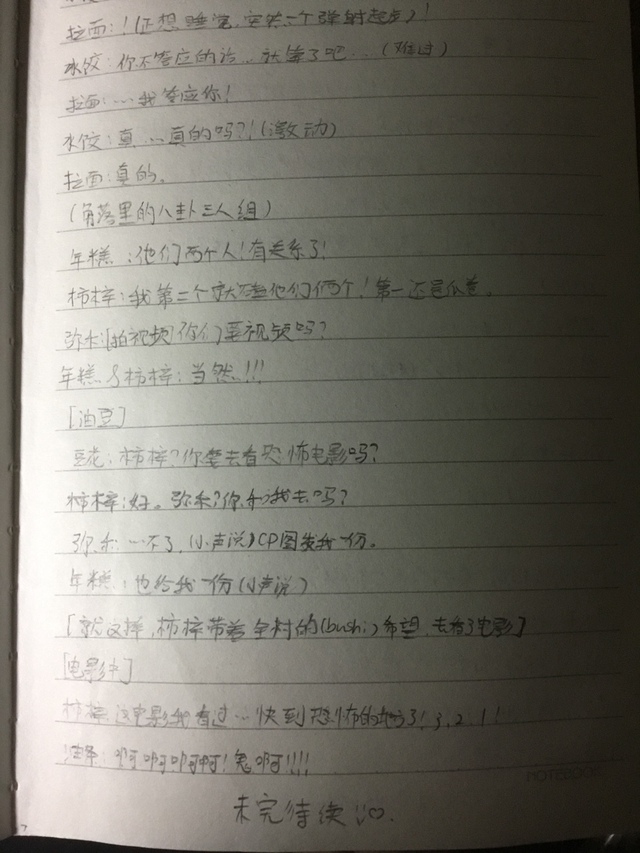 拉面:！(正想睡觉,突然一个弹射起步)！
水饺:你不答应的话..就算了吧...(难过)
拉面:...我答应你!
水饺:真...真的吗?!(激动)
拉面:真的。
(角落里的八卦三人组)
年糕:他们两个人!有关系了!
柿梓:我第二个就磕他们俩个!第一还是瓜姜。
弥未:拍视频你们要视频吗?
年糕&柿梓:当然!!!
[油豆]
豆花:柿梓?你要去看恐怖电影吗?
柿梓:好。弥未?你和我去吗?
弥未:...不了,(小声说)CP图发我一份。
年糕:也给我一份(小声说)
[就这样,柿梓带着全村的(bushi)希望,去看了电影]
[电影片]
柿梓:这电影我看过...快到恐怖的地方了!3,2,1!
油条:啊啊啊啊!鬼啊!!!!
NOTEBOOK
未完待续